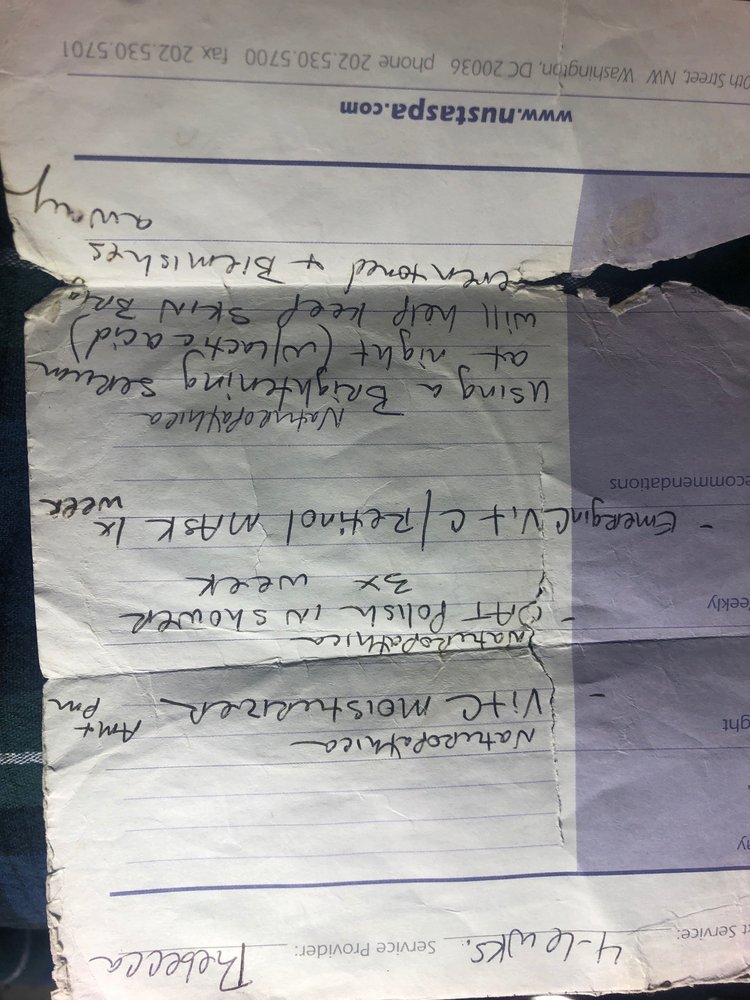 t Service: 4-6 wks. Service Provider: Rebecca
ny
ght
Naturopathica
- Vit C Moisturizer Am + Pm
Naturopathica
eekly
- OAT Polish in shower
3x week
- EmerginC Vit C/Retinol MASK 1x week
ecommendations
Naturopathica
Using a Brightening serum
at night (w/lactic acid)
will help keep SKIN Brig
even toned + Blemishes
away
www.nustaspa.com
0th Street, NW Washington, DC 20036 phone 202.530.5700 fax 202.530.5701